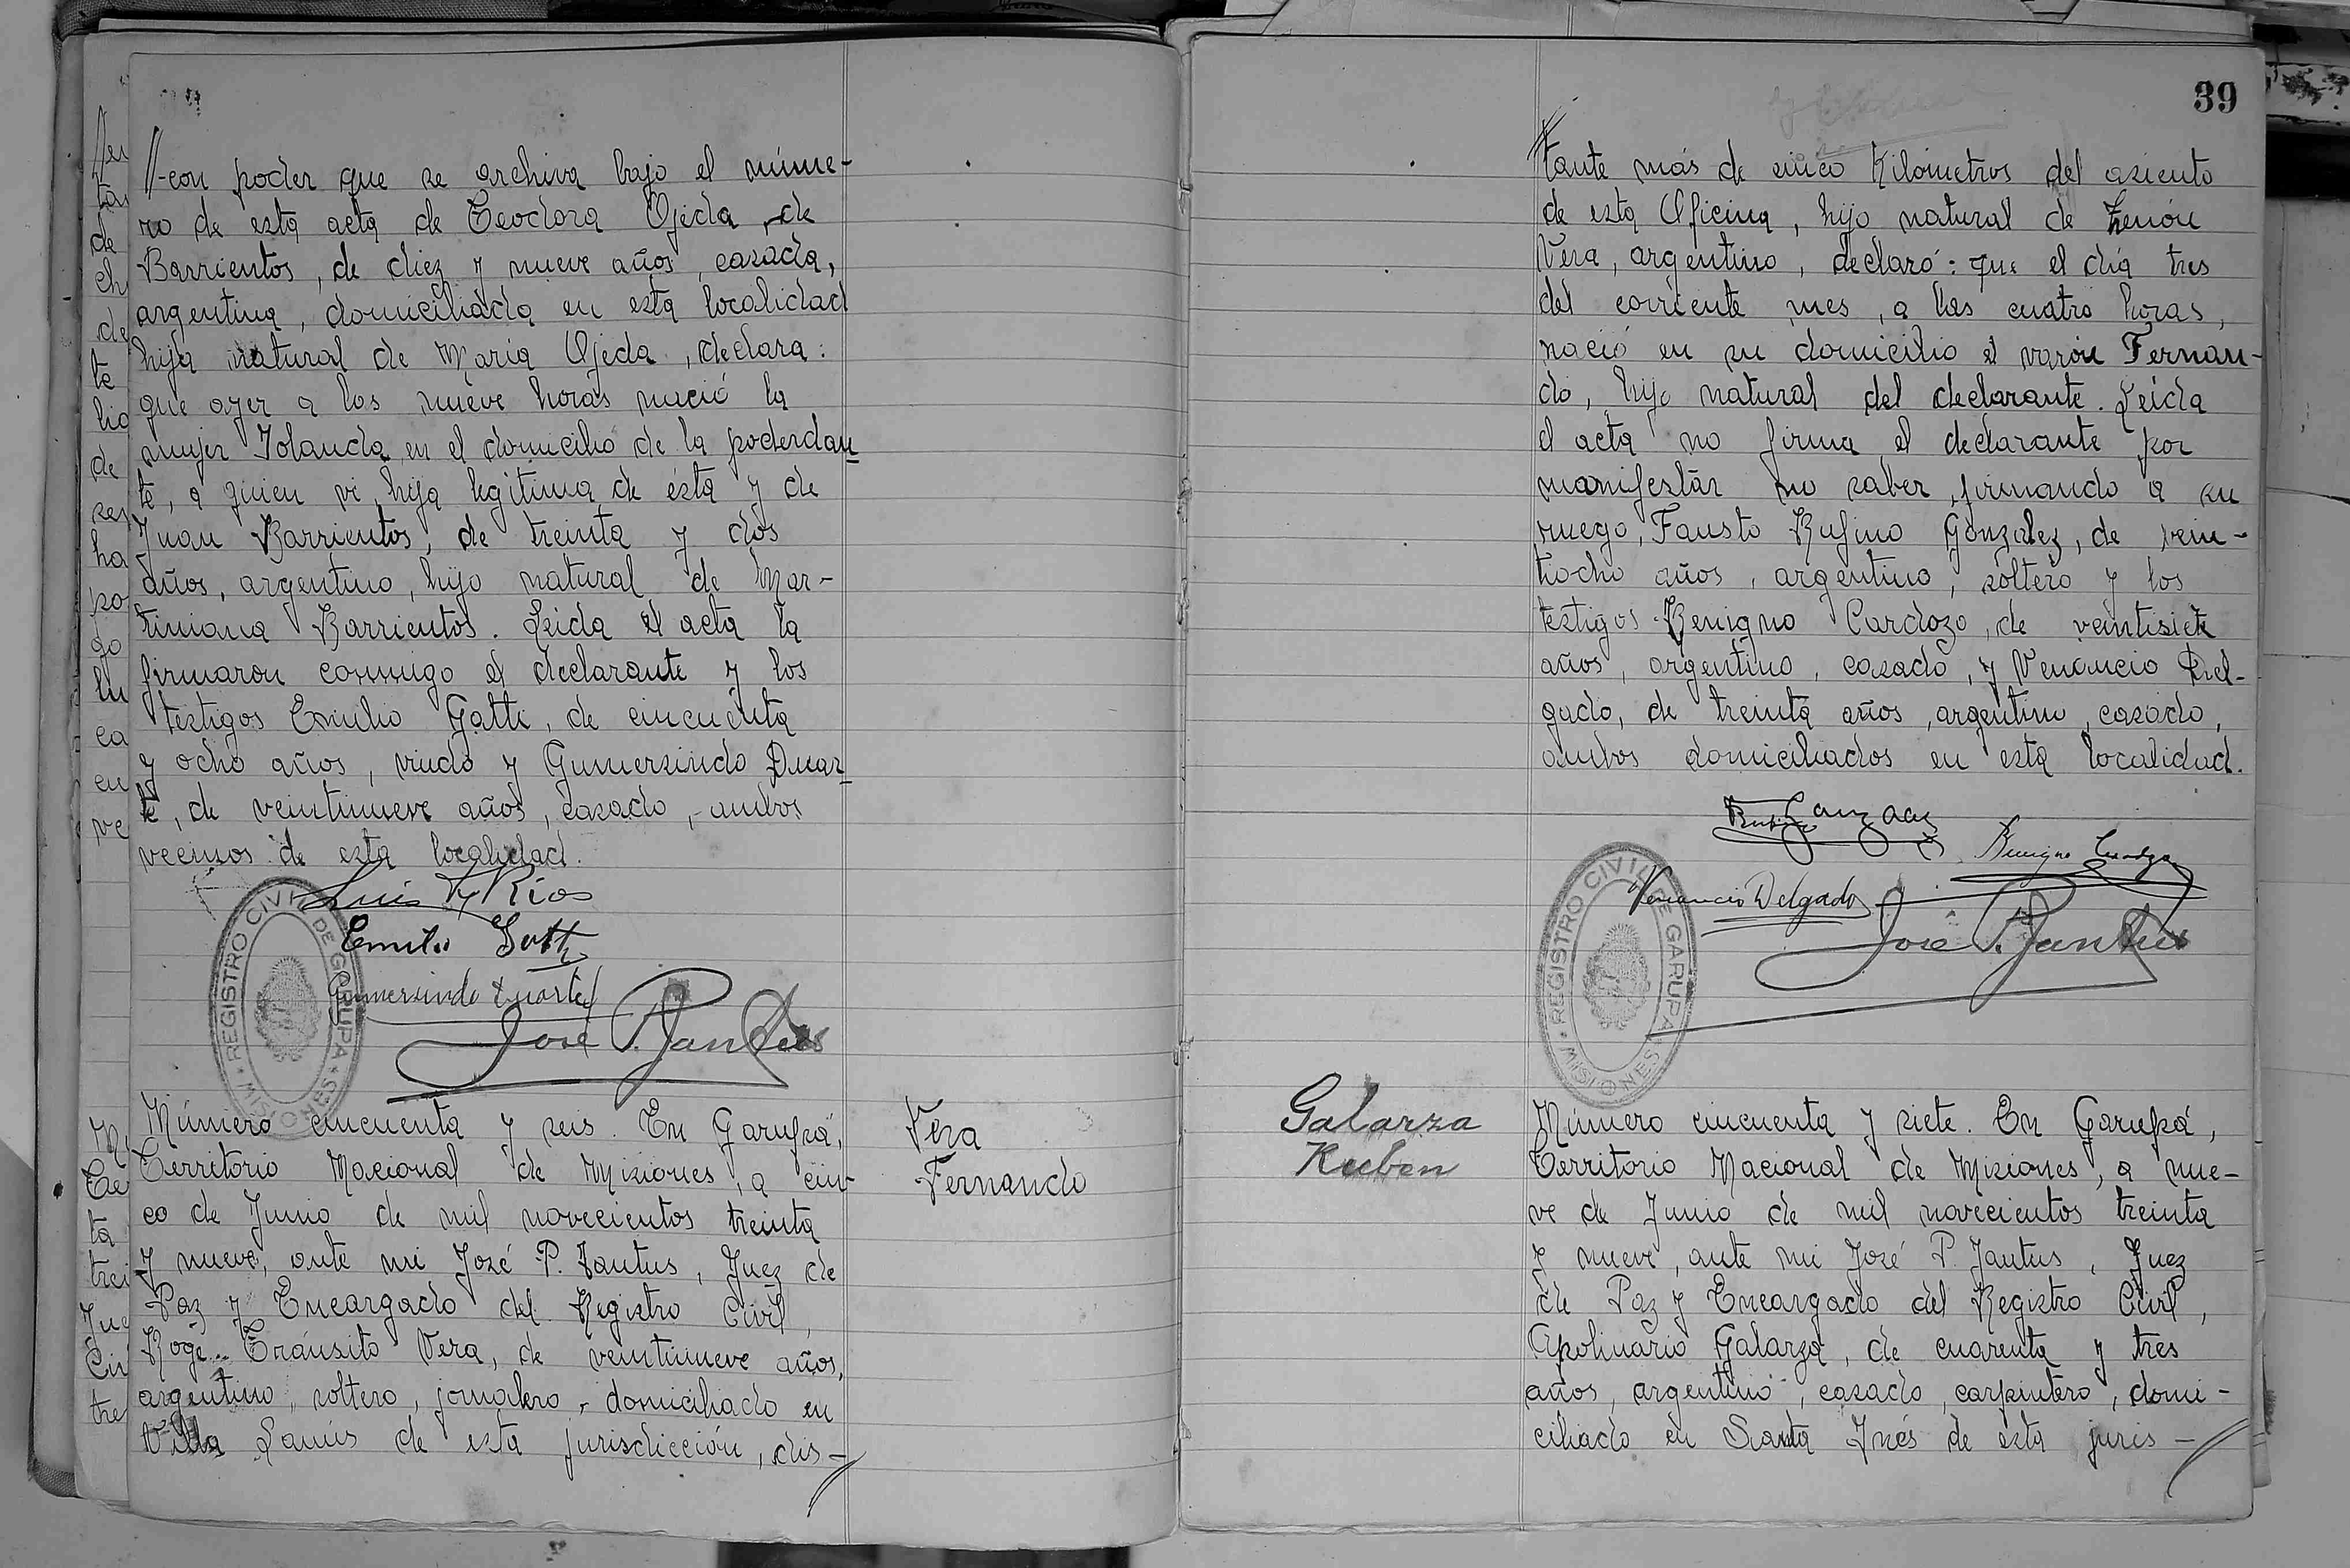 //-con poder que se archiva bajo el núme-
ro de esta acta de Teodora Ojeda de
Barrientos, de diez y nueve años, casada,
argentina, domiciliada en esta localidad
hija natural de María Ojeda, declara:
que ayer a las nueve horas nació la
mujer Iolanda en el domicilio de la poderdan
te, a quien vi, hija legitima de ésta y de
Juan Barrientos, de treinta y dos
años, argentino, hijo natural de Mar-
tiniana Barrientos. Leida el acta la
firmaron conmigo el declarante y los
testigos Emilio Gatti, de cincuenta
y ocho años, viudo y Gumersindo Duar
te, de veintinueve años, casado, ambos
vecinos de esta localidad.
Luis Ríos
Emilio Gatti
Gumersindo Duarte
José P. Jantus
REGISTRO CIVIL DE GARUPA
MISIONES
Número cincuenta y seis. En Garupá,
Territorio Nacional de Misiones, a cin-
co de Junio de mil novecientos treinta
y nueve, ante mi José P. Jantus, Juez de
Paz y Encargado del Registro Civil,
Tránsito Vera, de veintinueve años,
argentino, soltero, jornalero, domiciliado en
Villa Lanús de esta jurisdicción, dis-
Vera
Fernando
39
//tante más de cinco Kilómetros del asiento
de esta Oficina, hijo natural de Zenón
Vera, argentino, declaró: que el día tres
del corriente mes, a las cuatro horas,
nació en su domicilio el varón Fernan-
do, hijo natural del declarante. Leida
el acta no firma el declarante por
manifestar no saber, firmando a su
ruego, Fausto Rufino Gonzalez, de vein-
tiocho años, argentino, soltero y los
testigos Benigno Cardozo, de veintisiete
años, argentino, casado, y Venancio Del-
gado, de treinta años, argentino, casado,
ambos domiciliados en esta localidad.
Benigno Cardozo
Venancio Delgado
José P. Jantus
REGISTRO CIVIL DE GARUPA
MISIONES
Galarza
Ruben
Número cincuenta y siete. En Garupá,
Territorio Nacional de Misiones, a nue-
ve de Junio de mil novecientos treinta
y nueve, ante mi José P. Jantus, Juez
de Paz y Encargado del Registro Civil,
Apolinario Galarza, de cuarenta y tres
años, argentino, casado, carpintero, domi-
ciliado en Santa Inés de esta juris-